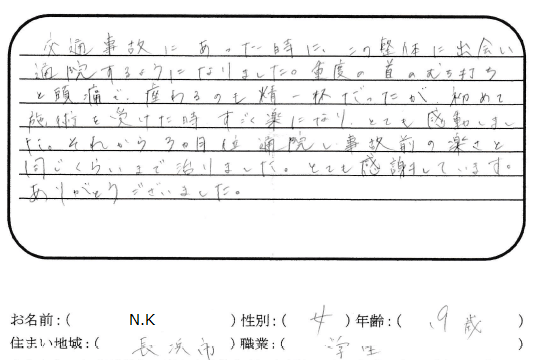 交通事故にあった時に、この整体に出会い
通院するようになりました。重度の首のむち打ち
と頭痛で、座わるのも精一杯だったが、初めて
施術を受けた時すごく楽になり、とても感動しまし
た。それから3ヵ月位通院し事故前の楽さと
同じくらいまで治りました。とても感謝しています。
ありがとうございました。
お名前:( N.K )性別:( 女 )年齢:( 19歳 )
住まい地域:( 長浜市 )職業:( 学生 )